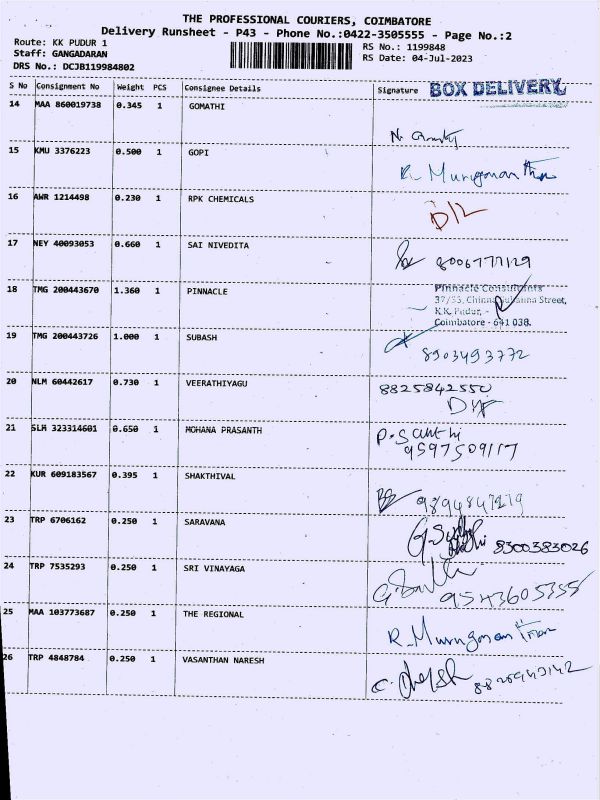 THE PROFESSIONAL COURIERS, COIMBATORE
Delivery Runsheet - P43 - Phone No.:0422-3505555 - Page No.:2
Route: KK PUDUR 1 RS No.: 1199848
Staff: GANGADARAN RS Date: 04-Jul-2023
DRS No.: DCJB119984802
S No Consignment No Weight PCS Consignee Details Signature BOX DELIVERY
14 MAA 860019738 0.345 1 GOMATHI
15 KMU 3376223 0.500 1 GOPI
R. Murugonanthan
16 AWR 1214498 0.230 1 RPK CHEMICALS
D/L
17 NEY 40093053 0.660 1 SAI NIVEDITA
8006777129
18 TMG 200443670 1.360 1 PINNACLE Pinnacle Consultants
37/53, Chinna Street,
K.K. Pudur,
Coimbatore - 641 038.
19 TMG 200443726 1.000 1 SUBASH
8903493772
20 NLM 60442617 0.730 1 VEERATHIYAGU 8825842550
21 SLM 323314601 0.650 1 MOHANA PRASANTH P. Santhi
9597509117
22 KUR 609183567 0.395 1 SHAKTHIVAL
9894847279
23 TRP 6706162 0.250 1 SARAVANA
8300383026
24 TRP 7535293 0.250 1 SRI VINAYAGA
9543605355
25 MAA 103773687 0.250 1 THE REGIONAL
R. Murugonanthan
26 TRP 4848784 0.250 1 VASANTHAN NARESH